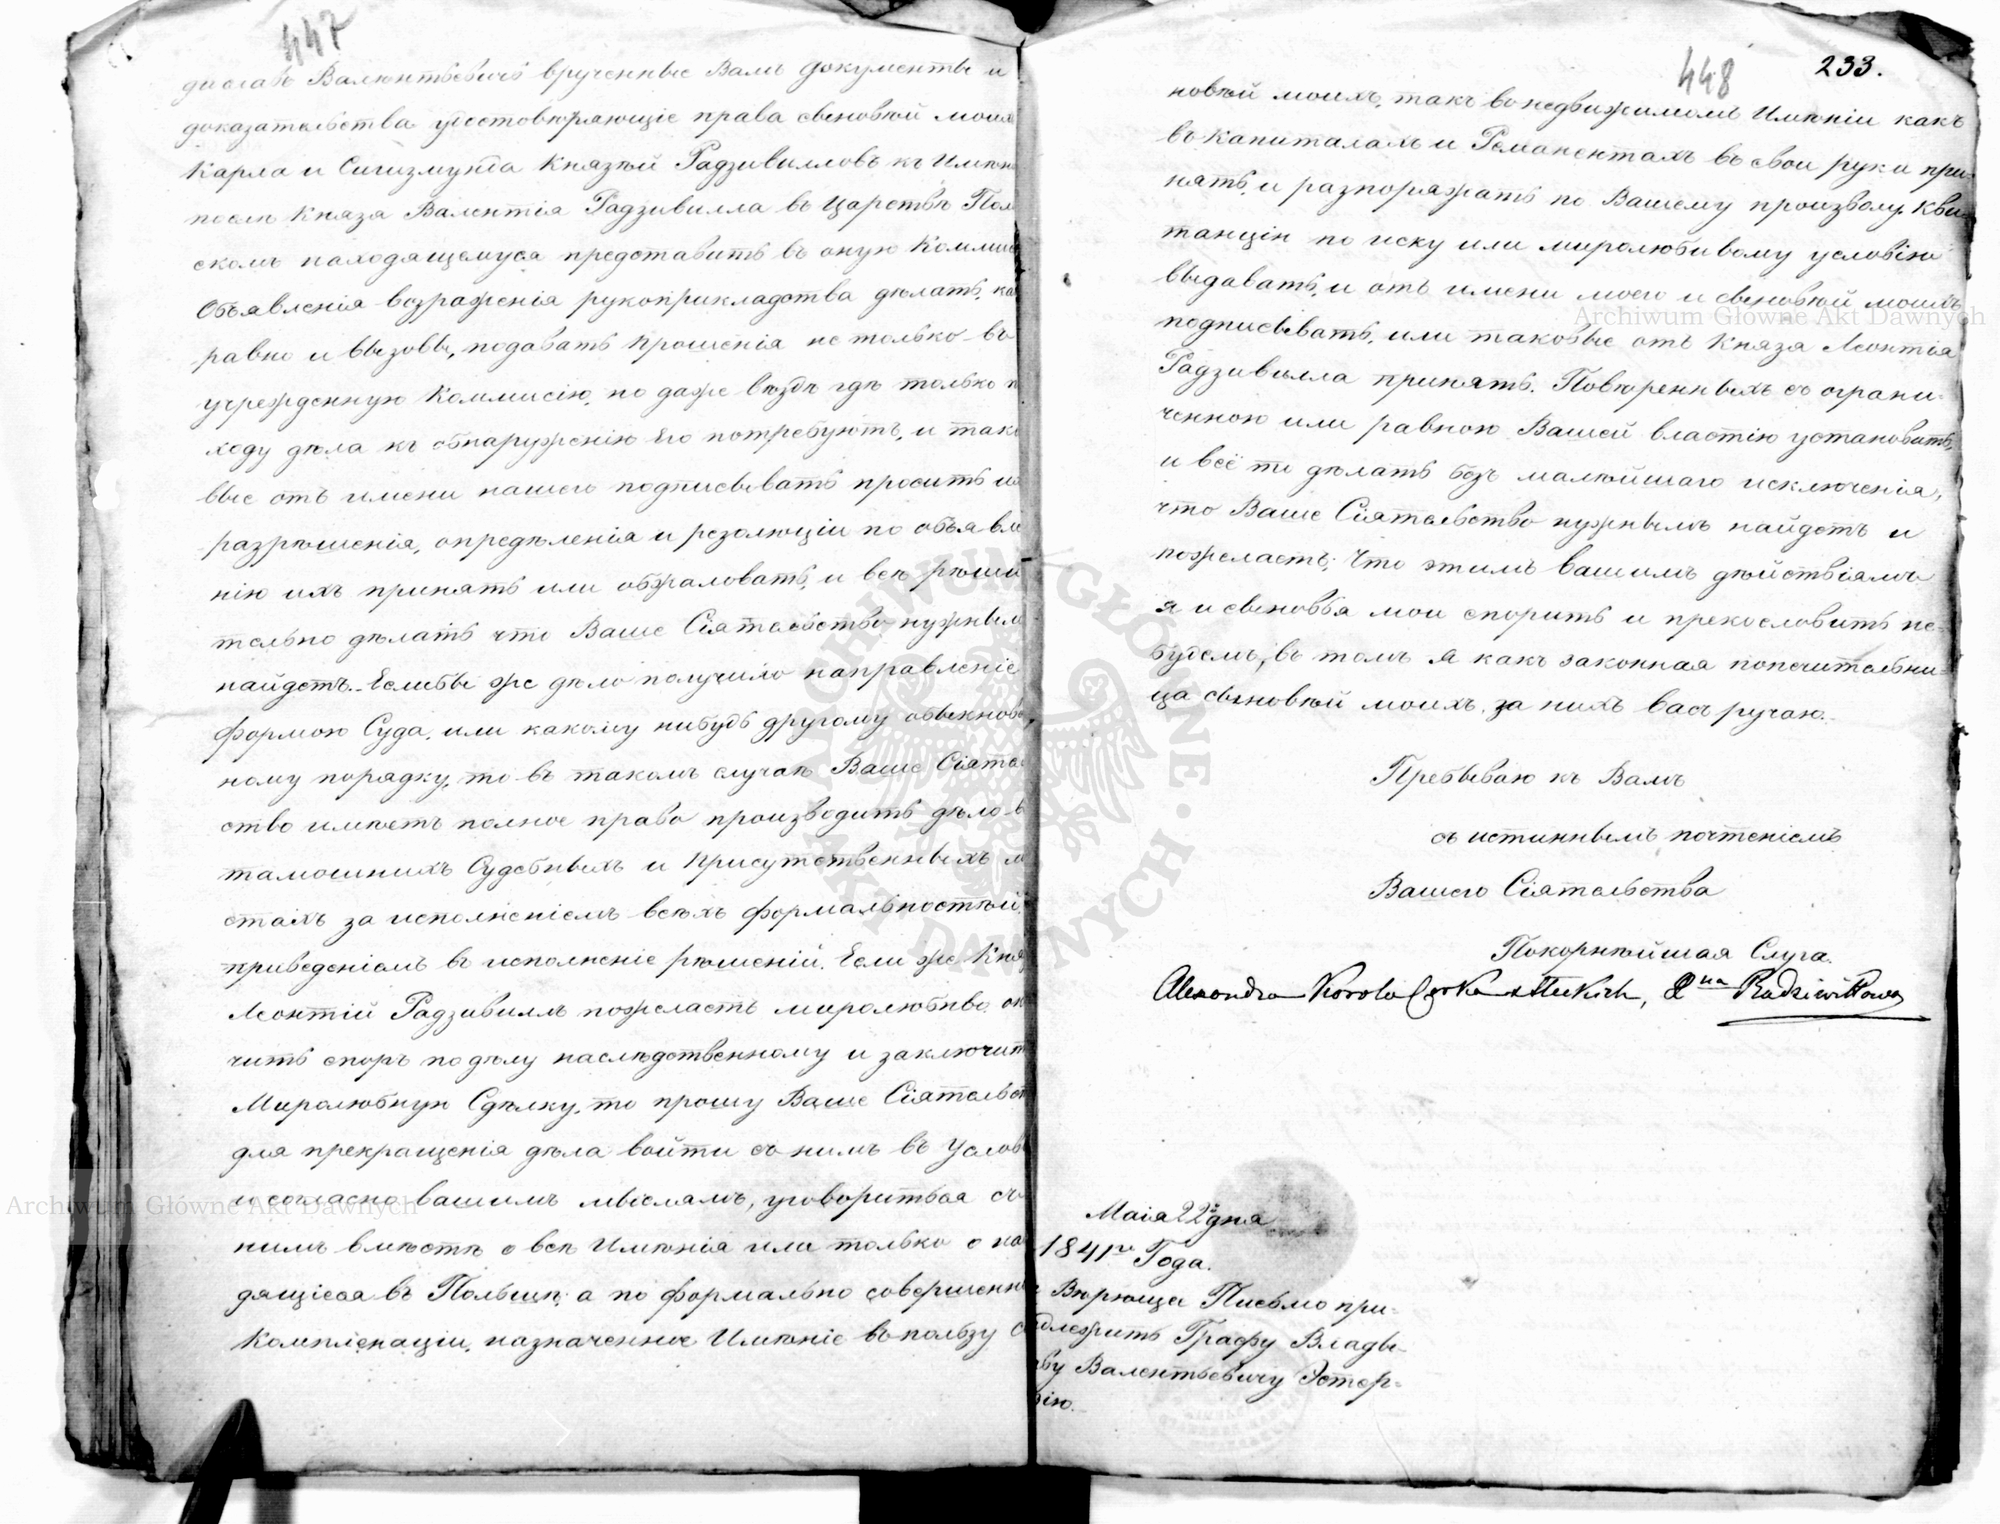 447
диславъ Валентьевичъ врученные Вамъ документы и
доказательства удостовѣряющіе права сыновѣй моихъ
Карла и Сигизмунта Князѣй Радзивилловъ къ Имѣн
послѣ Князя Валентія Радзивилла въ Царствѣ Поль
скомъ находящемуся представить въ оную Коммис
Объявленія возраженія рукоприкладства дѣлать, ка
равно и вызовы, подавать прошенія не только въ
учрежденную Коммисію, но даже вѣздѣ гдѣ только п
ходу дѣла къ обнаруженію Его потребуютъ, и тако
вые отъ имени нашего подписывать просить и
разрѣшенія, опредѣленія и резолюціи по объявле
нію ихъ принять или обжаловать, и всѣ рѣши
тельно дѣлать что Ваше Сіятельство нужнымъ
найдетъ. Еслибы же дѣло получило направленіе
формою Суда, или какому нибудь другому обыкнове
ному порядку, то въ такомъ случаѣ Ваше Сіятель
ство имѣетъ полное право производить дѣло в
тамошнихъ Судебныхъ и Присутственныхъ м
стахъ за исполненіемъ всѣхъ формальностѣй
приведеніемъ въ исполненіе рѣшеній. Если же Кня
Леонтій Радзивиллъ пожелаетъ миролюбиво ок
чить споръ по дѣлу наслѣдственному и заключит
Миролюбную Сдѣлку, то прошу Ваше Сіятельст
для прекращенія дѣла войти съ нимъ въ Услов
и согласно вашимъ мыслямъ, уговоритьса съ
нимъ вмѣстѣ о всѣ Имѣнія или только о на
дящіеся въ Польшѣ; а по формально совершенн
Комплянаціи, назначенное Имѣніе въ пользу с
448
233.
новѣй моихъ, такъ въ недвижимомъ Имѣніи какъ
въ капиталахъ и Ремонентахъ въ свои руки при
нять, и разпоряжать по Вашему произволу. Кви
танціи по иску или миролюбивому условію
выдавать, и отъ имени моего и сыновѣй моихъ
подписывать, или таковые отъ Князя Леонтія
Радзивилла принять. Повѣренныхъ съ ограни-
ченною или равною Вашей властію установить,
и всё то дѣлать безъ малѣйшаго исключенія,
что Ваше Сіятельство нужнымъ найдетъ и
пожелаетъ; Что этимъ вашимъ дѣйствіямъ
я и сыновья мои спорить и прекословить не-
будемъ, въ томъ я какъ законная попечительни-
ца сыновѣй моихъ, за нихъ васъ ручаю.
Пребываю къ Вамъ
съ истиннымъ почтеніемъ
Вашего Сіятельства
Покорнѣйшая Слуга.
Alexandra Korolo Radziwiłłowa
Маія 22го дня
1841го Года.
Вѣрюще Письмо при-
длежить Графу Влады-
ву Валентьевичу Эстер-
зію.
Archiwum Główne Akt Dawnych
Archiwum Główne Akt Dawnych
ARCHIWUM GŁÓWNE AKT DAWNYCH